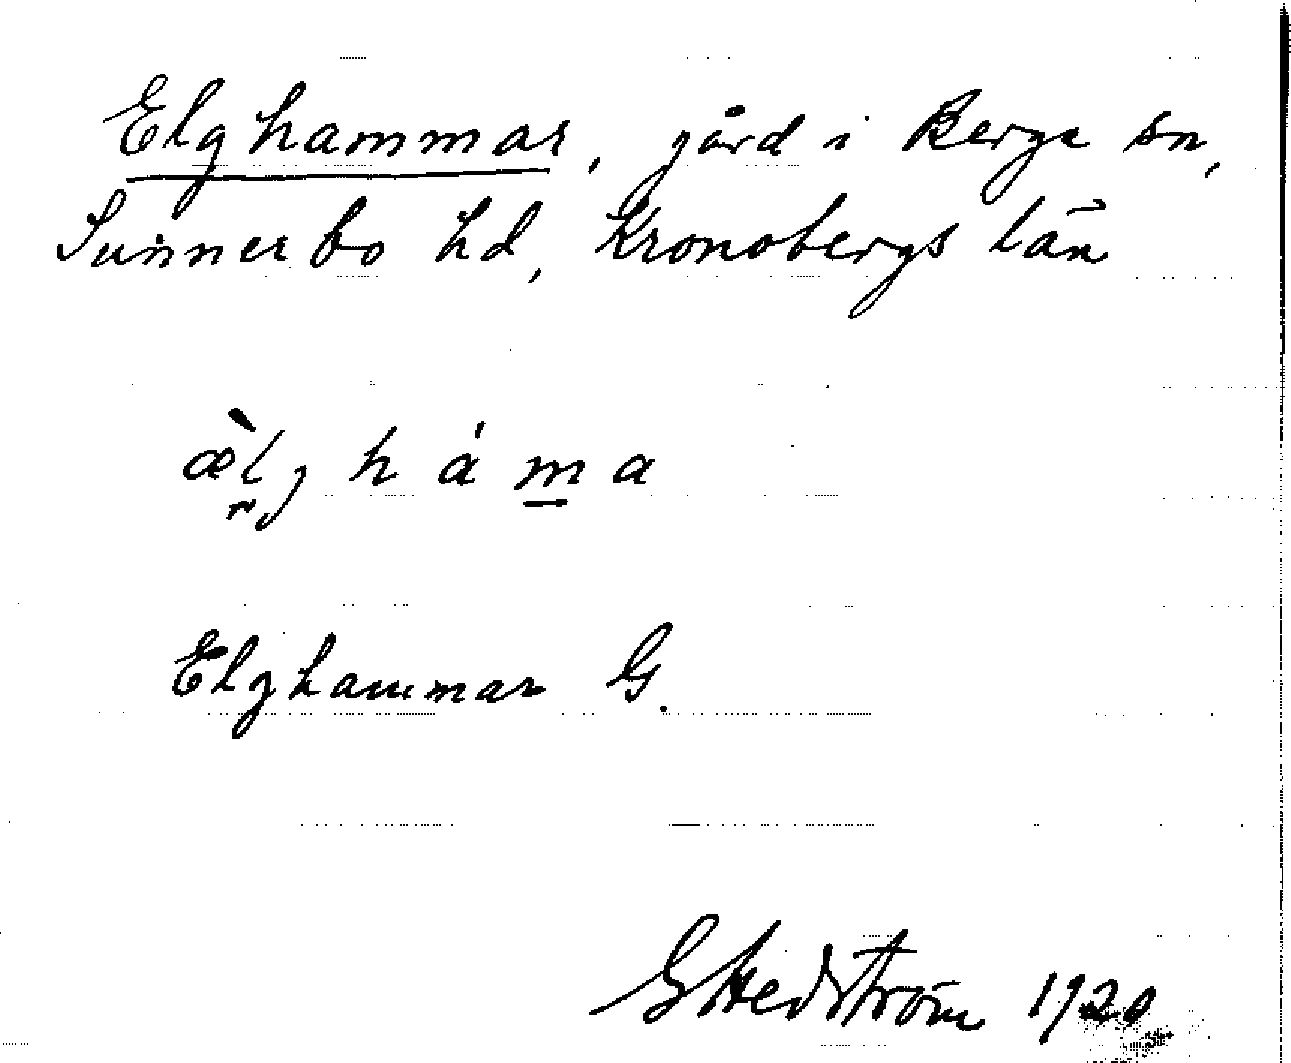 Elghammar, gård i Berga sn,
Sunnerbo hd, Kronobergs län
æ̀lj h á m a
Elghammar G.
G Hedström 1920